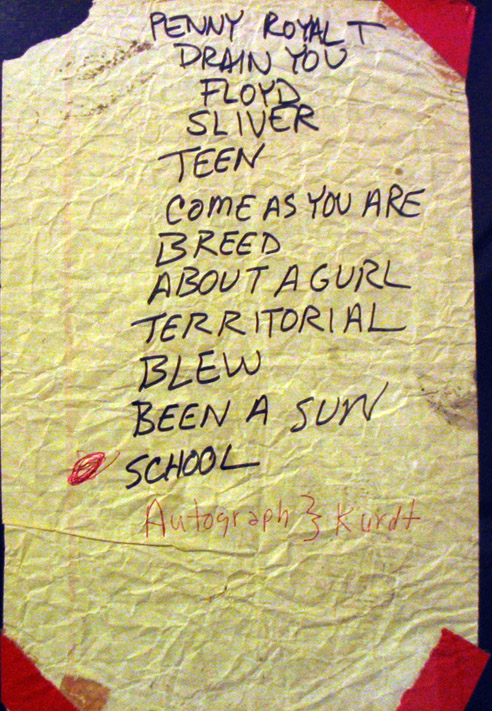 PENNY ROYAL T
DRAIN YOU
FLOYD
SLIVER
TEEN
COME AS YOU ARE
BREED
ABOUT A GURL
TERRITORIAL
BLEW
BEEN A SUN
SCHOOL
Autograph } Kurdt